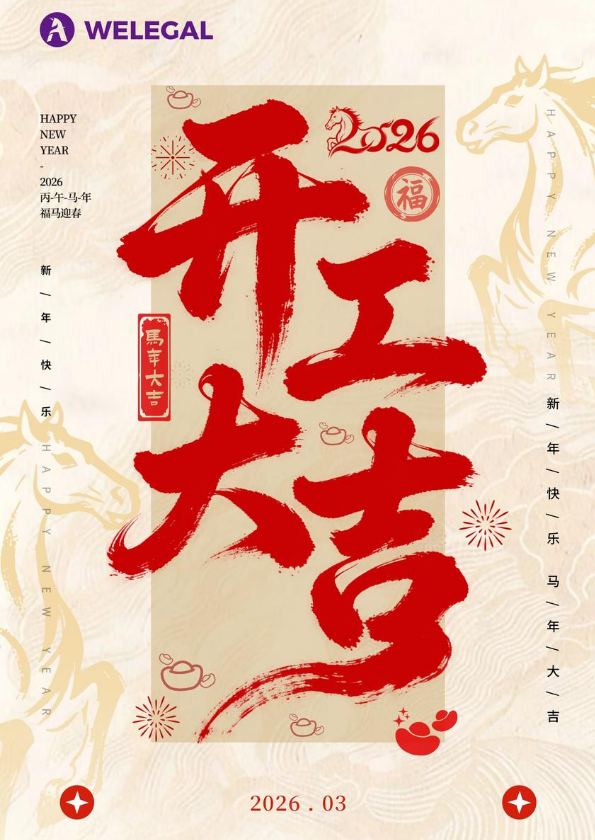 WELEGAL
HAPPY
NEW
YEAR
-
2026
丙-午-马-年
福马迎春
2026
福
开工大吉
馬年大吉
新/年/快/乐
HAPPY NEW YEAR
HAPPY NEW YEAR
新/年/快/乐 马/年/大/吉
2026 . 03